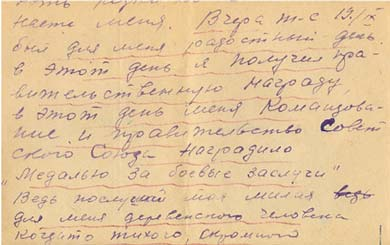 насте меня. Вчера т-с 19/IX
был для меня радостный день
в этот день я получил пра-
вительственную награду,
в этот день меня Командова-
ние и правительство Совет
ского Союза Наградило
"Медалью За боевые заслуги"
Ведь послушай моя милая ведь
для меня деревенского человека
Когдато тихого, скромного